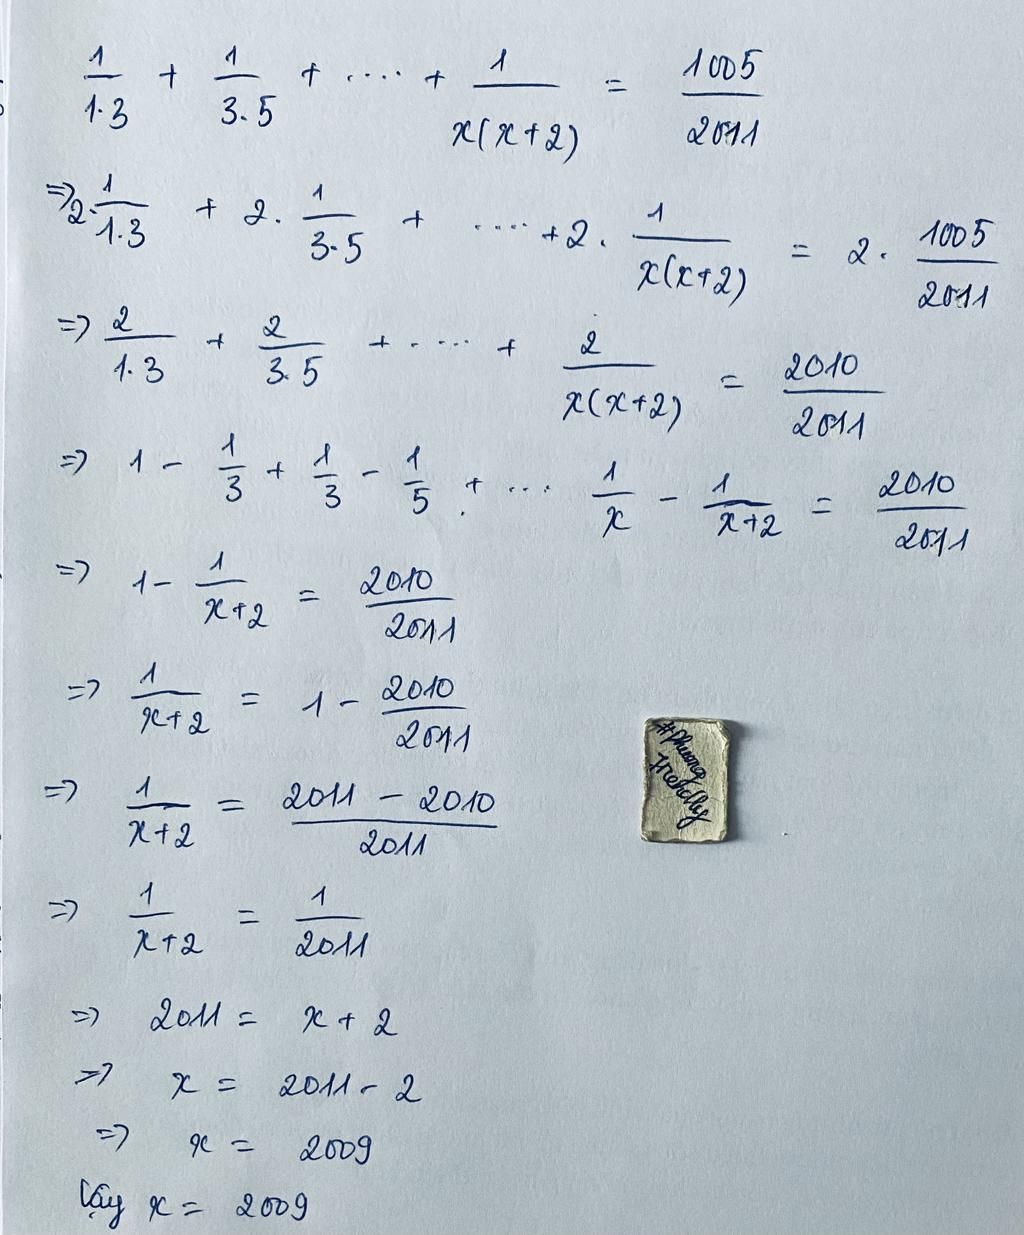 1/1.3 + 1/3.5 + .... + 1/x(x+2) = 1005/2011
=> 2.1/1.3 + 2.1/3.5 + .... + 2.1/x(x+2) = 2.1005/2011
=> 2/1.3 + 2/3.5 + .... + 2/x(x+2) = 2010/2011
=> 1 - 1/3 + 1/3 - 1/5 + ... 1/x - 1/x+2 = 2010/2011
=> 1 - 1/x+2 = 2010/2011
=> 1/x+2 = 1 - 2010/2011
=> 1/x+2 = 2011 - 2010/2011
=> 1/x+2 = 1/2011
=> 2011 = x + 2
=> x = 2011 - 2
=> x = 2009
Vậy x = 2009
#Phuong